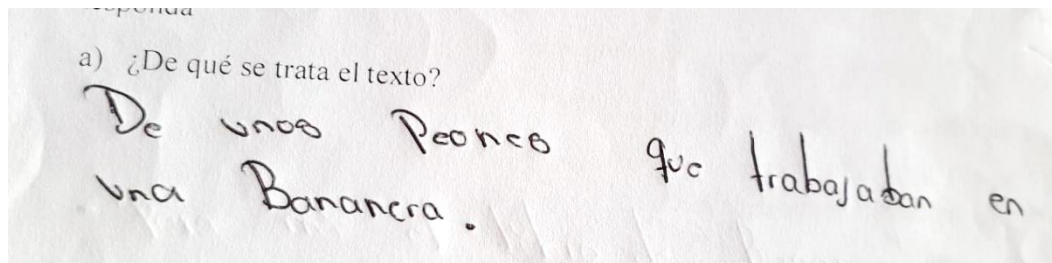 a) ¿De qué se trata el texto?
De unos Peones que trabajaban en
una Bananera.